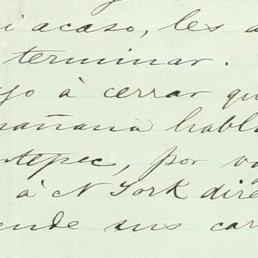 i acaso, les a
terminar.
go à cerrar qu
añana habl
tepec, por va
à N York dire
ende sus car